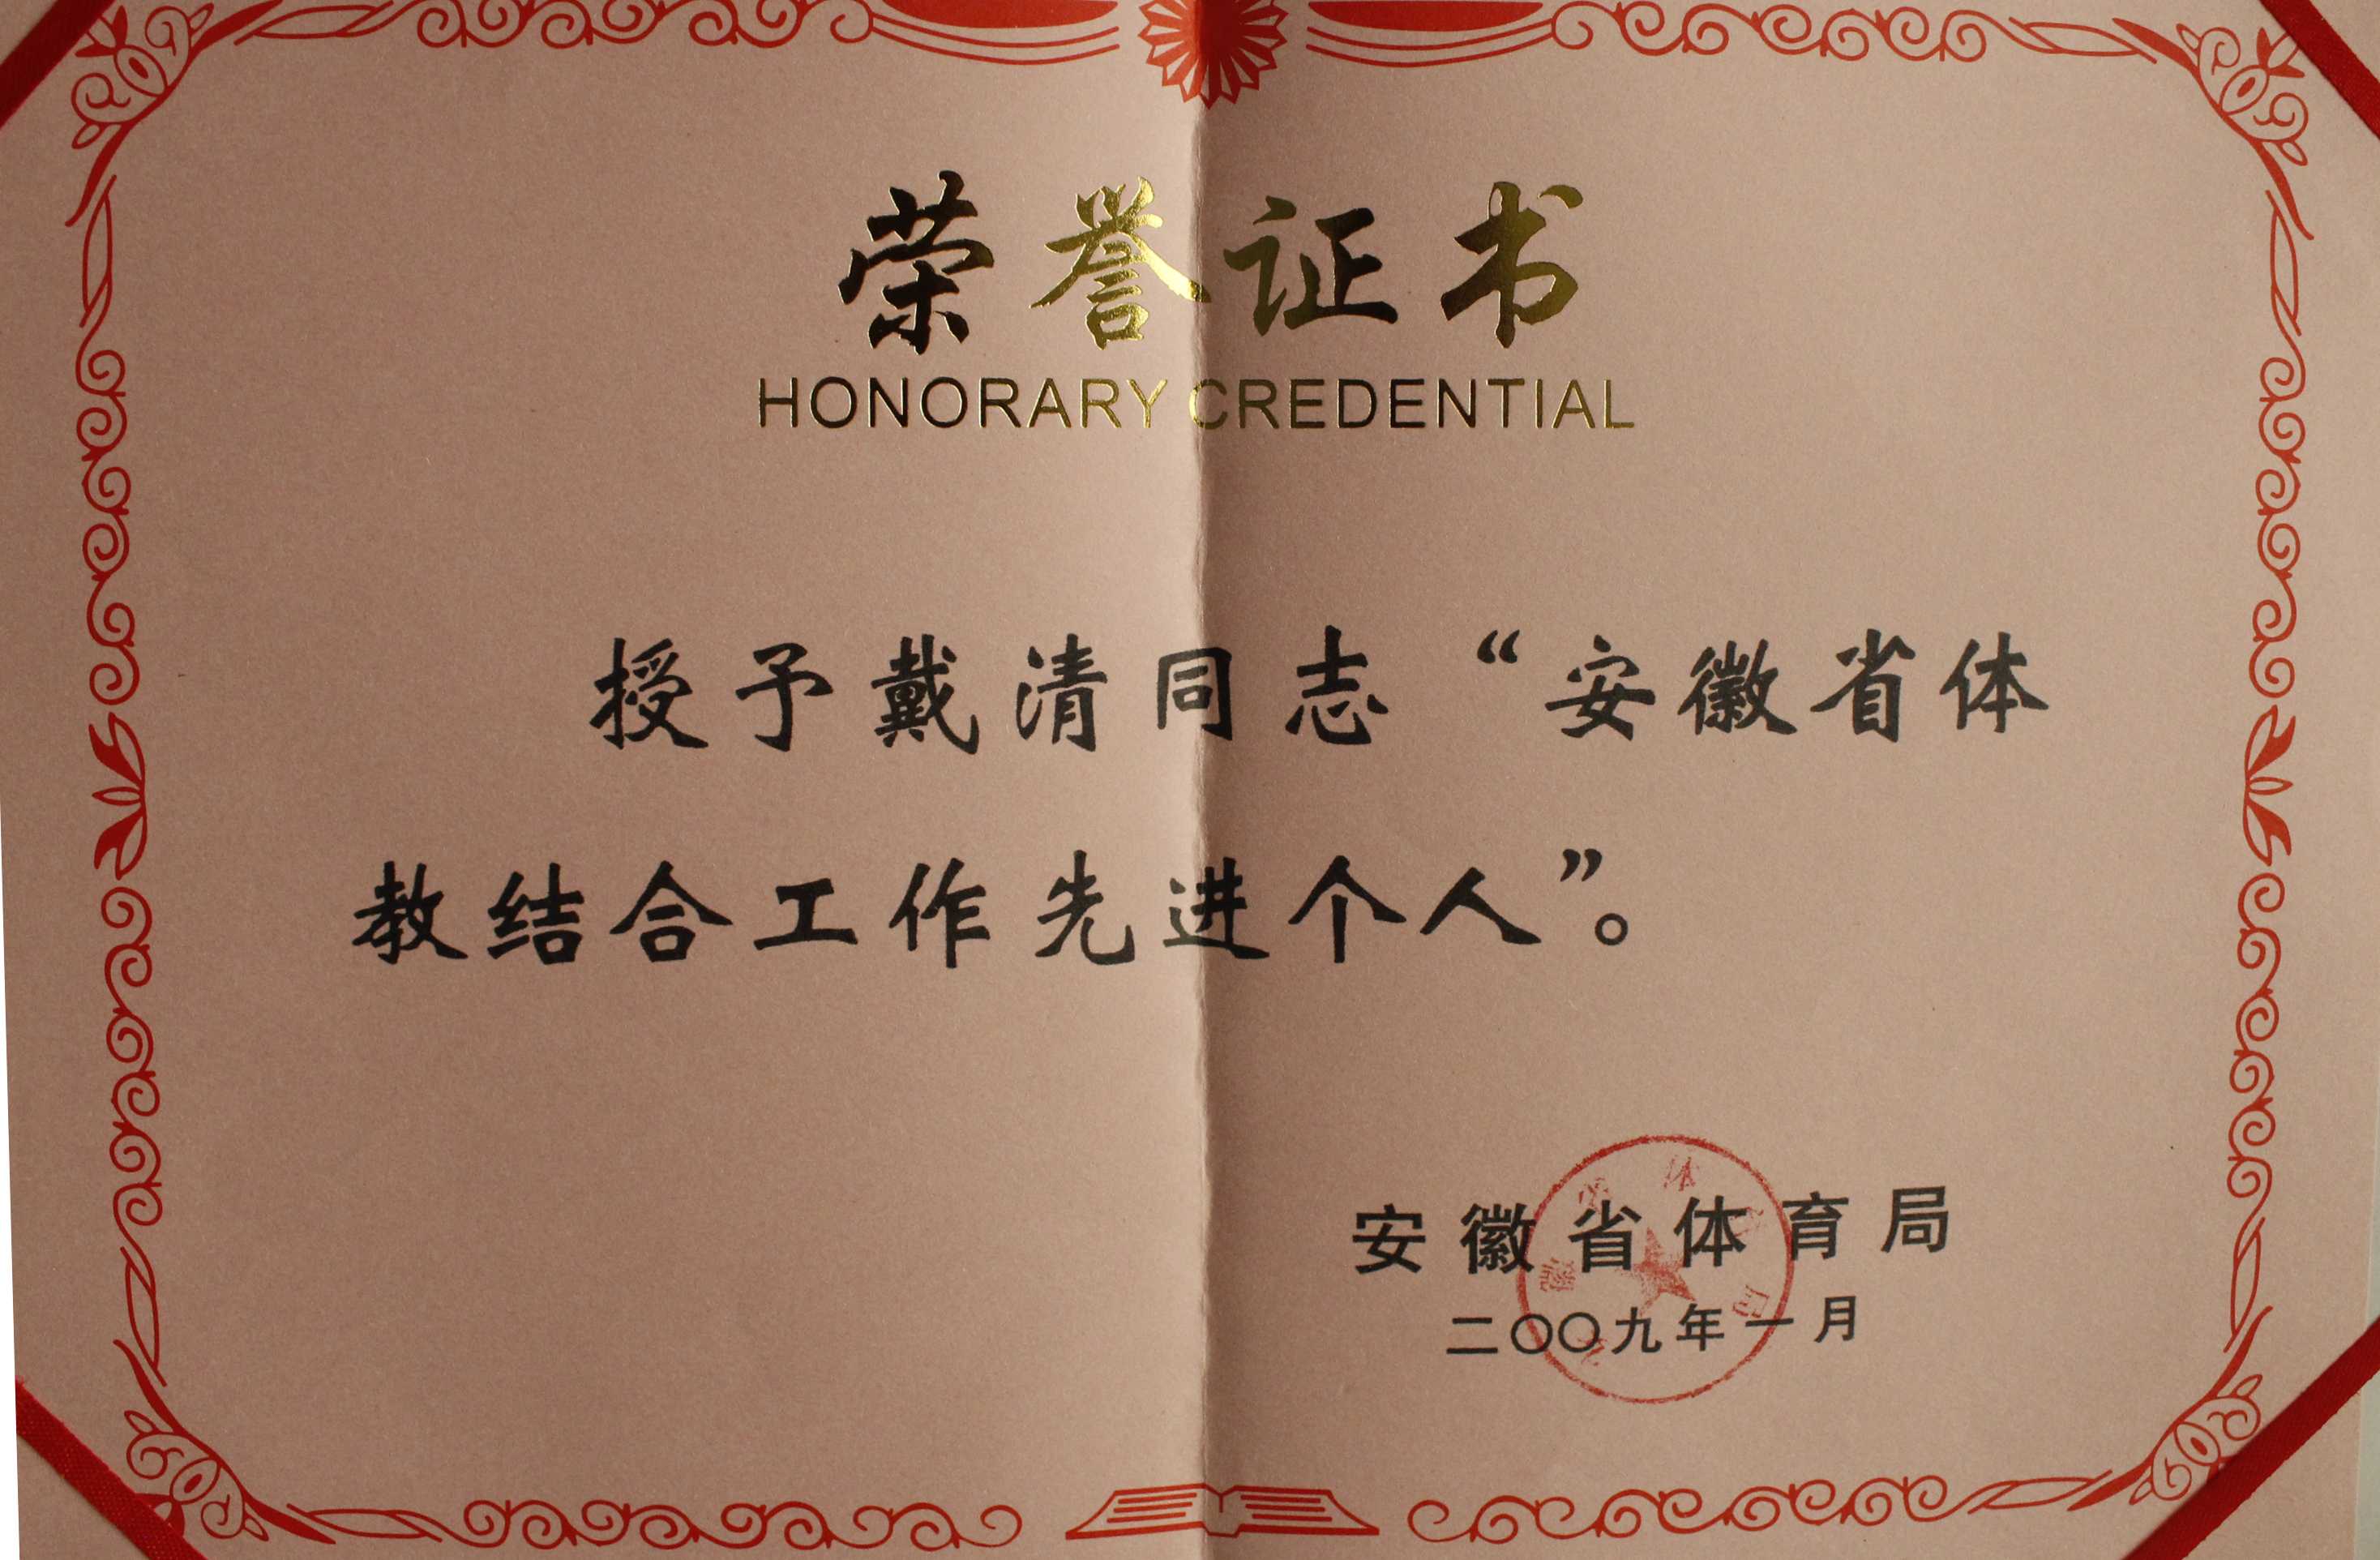 荣誉证书
HONORARY CREDENTIAL
授予戴清同志“安徽省体
教结合工作先进个人”。
安徽省体育局
二〇〇九年一月